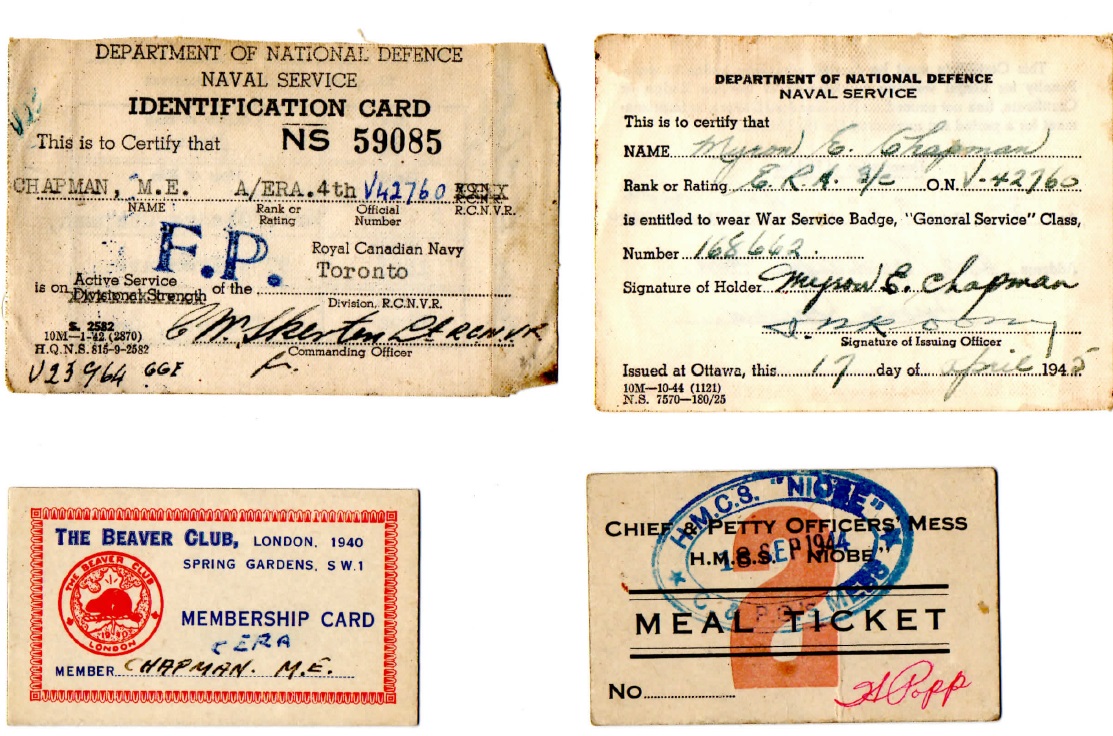 DEPARTMENT OF NATIONAL DEFENCE
NAVAL SERVICE
IDENTIFICATION CARD
This is to Certify that NS 59085
CHAPMAN, M.E. A/ERA.4th V42760 R.C.N.
R.C.N.R.
NAME Rank or Rating Official Number R.C.N.V.R.
F.P.
Royal Canadian Navy
Active Service
is on Divisional Strength of the Toronto
Division, R.C.N.V.R.
S. 2582
10M—1-42 (2870)
H.Q.N.S. 815-9-2582
Lt RCNVR
Commanding Officer
V23964 GGE
DEPARTMENT OF NATIONAL DEFENCE
NAVAL SERVICE
This is to certify that
NAME Myron E. Chapman
Rank or Rating E.R.A. 3/c O.N. V-42760
is entitled to wear War Service Badge, "General Service" Class,
Number 168662.
Signature of Holder Myron E. Chapman
Signature of Issuing Officer
Issued at Ottawa, this 17 day of April 1945
10M—10-44 (1121)
N.S. 7570—180/25
THE BEAVER CLUB, LONDON, 1940
SPRING GARDENS, S.W.1
THE BEAVER CLUB
1940
LONDON
MEMBERSHIP CARD
ERA
MEMBER CHAPMAN. M.E.
H.M.C.S. "NIOBE"
CHIEF & PETTY OFFICERS' MESS
H.M.C.S. "NIOBE"
SEP 1944
C. & P.O'S MESS
a
MEAL TICKET
No
H Popp